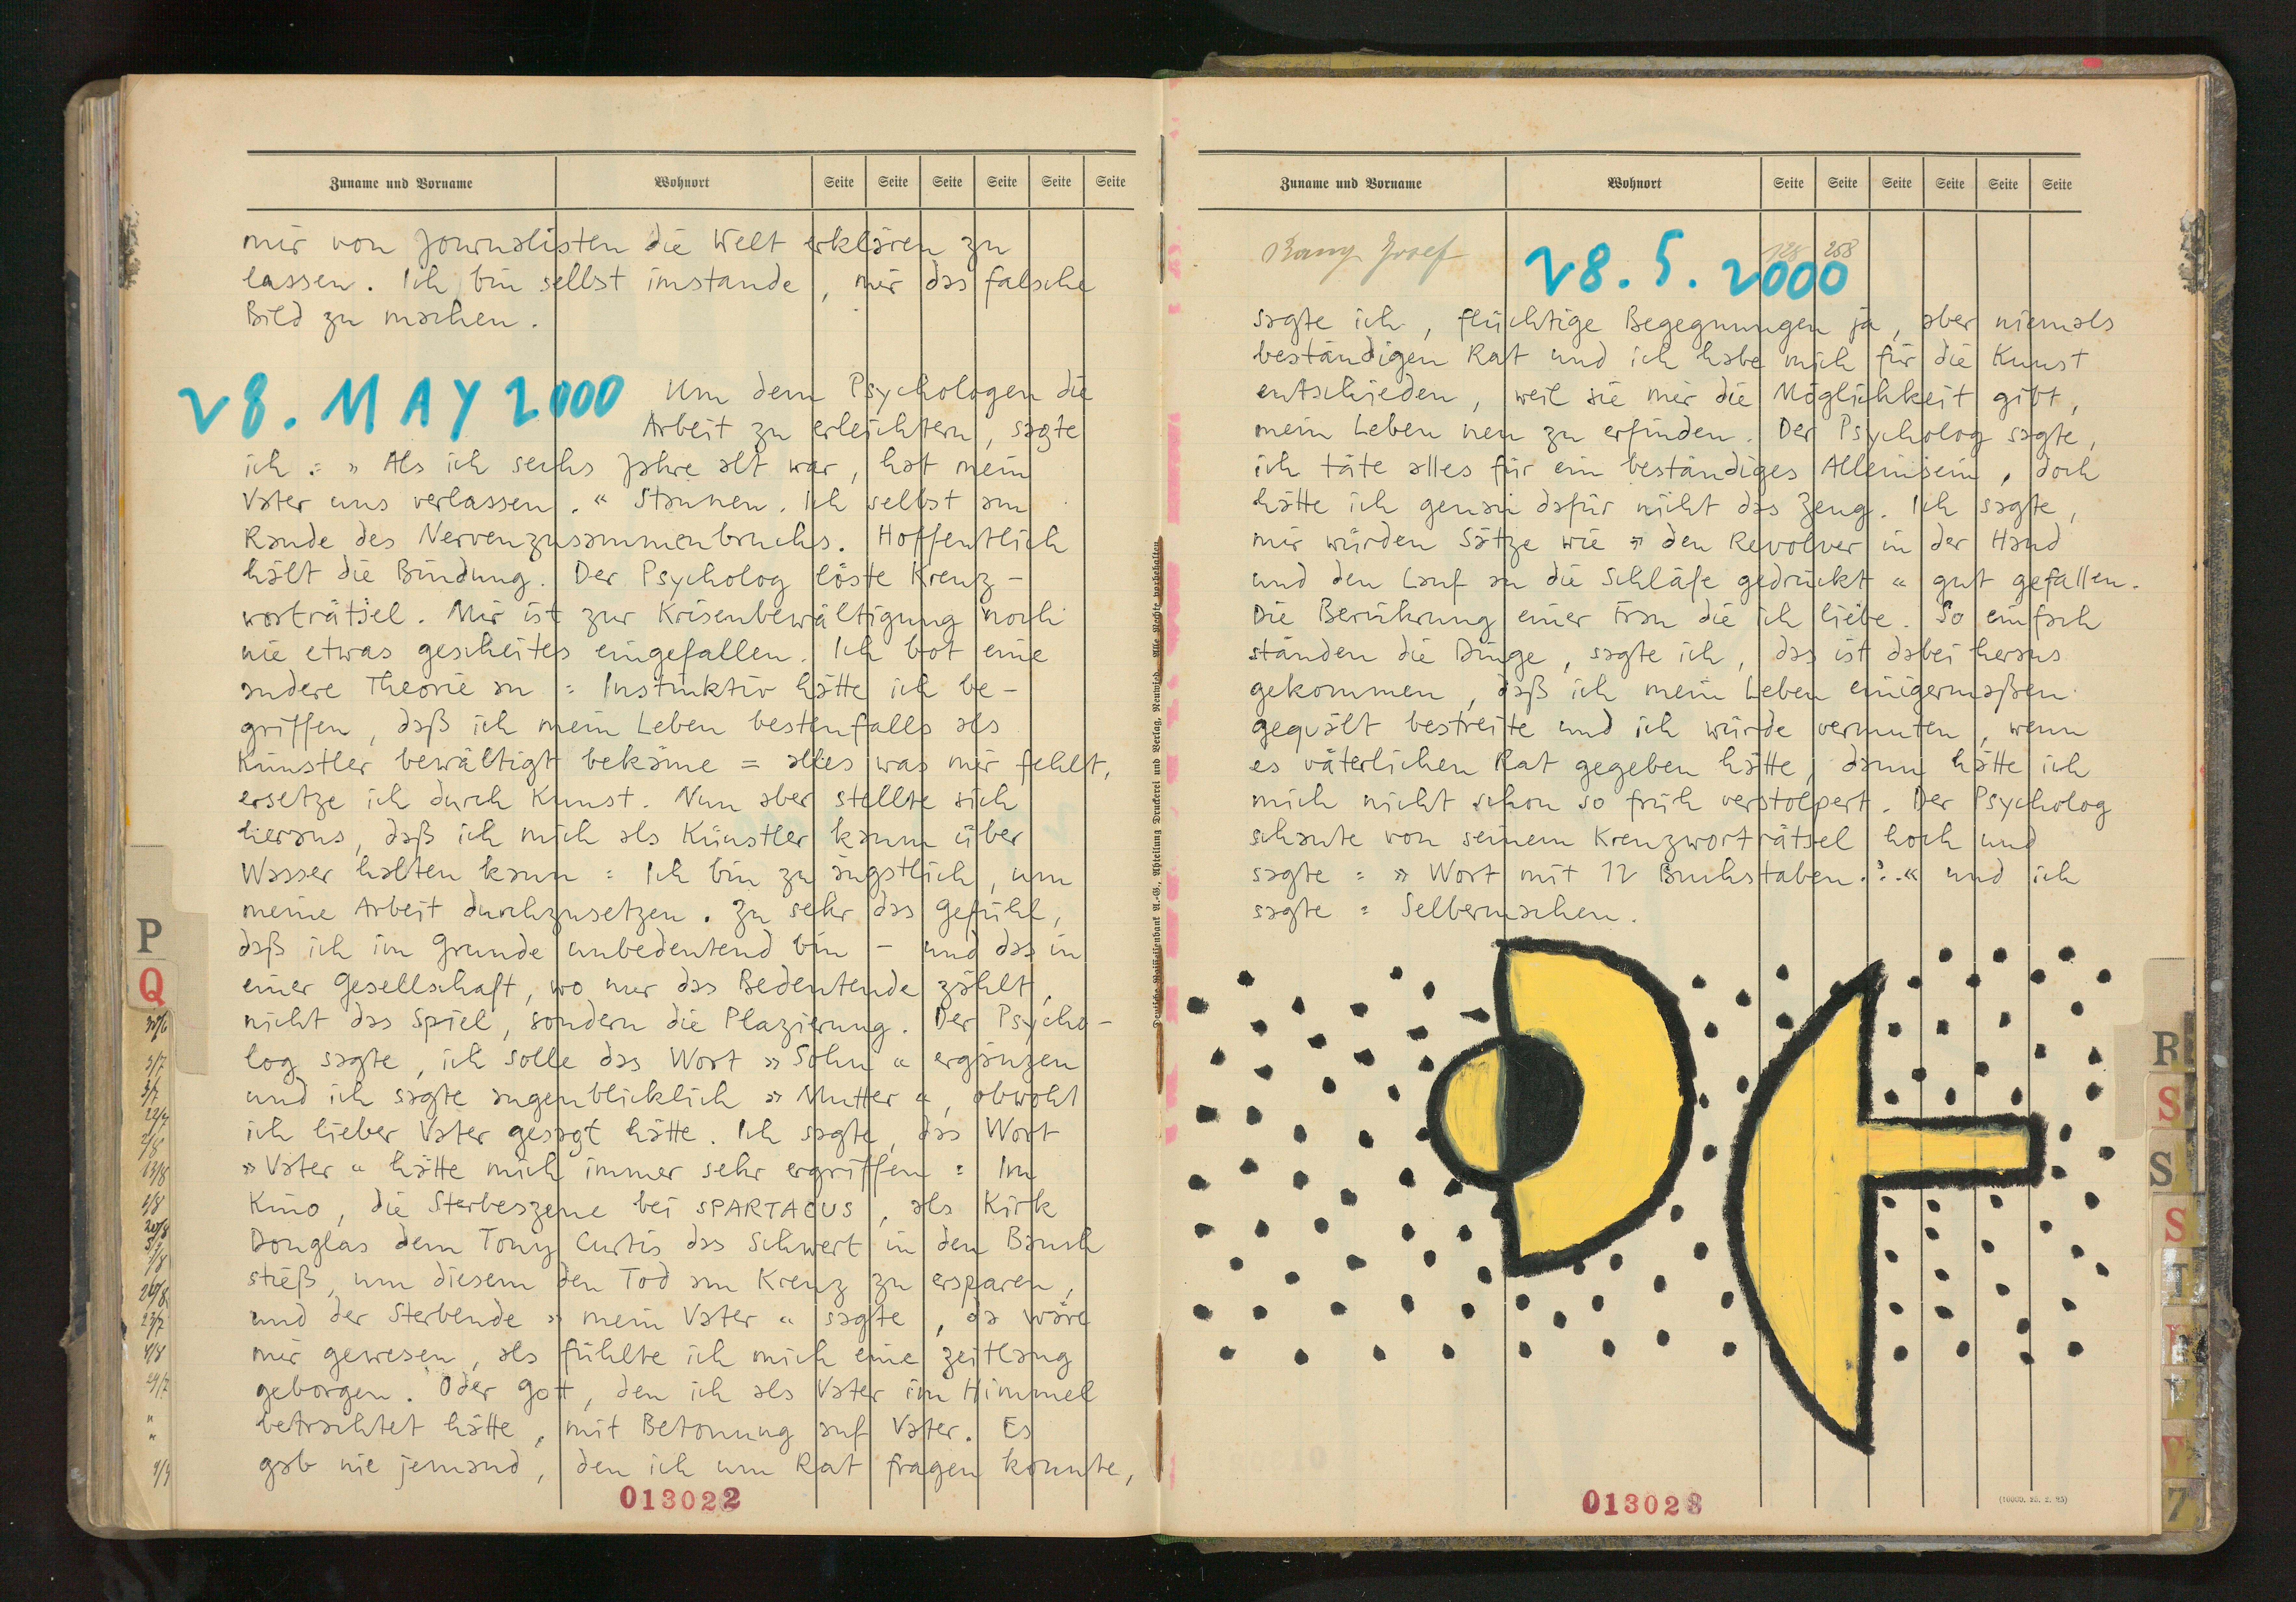 Zuname und Vorname Wohnort Seite Seite Seite Seite Seite Seite
mir von Journalisten die Welt erklären zu
lassen. Ich bin selbst imstande, mir das falsche
Bild zu machen.
28. MAY 2000 Um dem Psychologen die
Arbeit zu erleichtern, sagte
ich : » Als ich sechs Jahre alt war, hat mein
Vater uns verlassen. « Staunen. Ich selbst am
Rande des Nervenzusammenbruchs. Hoffentlich
hält die Bindung. Der Psycholog löste Kreuz-
worträtsel. Mir ist zur Krisenbewältigung noch
nie etwas gescheites eingefallen. Ich bot eine
andere Theorie an : Instinktiv hätte ich be-
griffen, daß ich mein Leben bestenfalls als
Künstler bewältigt bekäme = alles was mir fehlt,
ersetze ich durch Kunst. Nun aber stellte sich
heraus, daß ich mich als Künstler kaum über
Wasser halten kann : Ich bin zu ängstlich, um
meine Arbeit durchzusetzen. Zu sehr das Gefühl,
daß ich im Grunde unbedeutend bin – und das in
einer Gesellschaft, wo nur das Bedeutende zählt,
nicht das Spiel, sondern die Plazierung. Der Psycho-
log sagte, ich solle das Wort » Sohn « ergänzen
und ich sagte augenblicklich » Mutter «, obwohl
ich lieber Vater gesagt hätte. Ich sagte, das Wort
» Vater « hätte mich immer sehr ergriffen : Im
Kino, die Sterbeszene bei SPARTACUS, als Kirk
Douglas dem Tony Curtis das Schwert in den Bauch
stieß, um diesem den Tod am Kreuz zu ersparen,
und der Sterbende » mein Vater « sagte, da wäre
mir gewesen, als fühlte ich mich eine zeitlang
geborgen. Oder Gott, den ich als Vater im Himmel
betrachtet hätte, mit Betonung auf Vater. Es
gab nie jemand, den ich um Rat fragen konnte,
013022
P
Q
Deutsche Raiffeisenbank A.-G., Abteilung Druckerei und Verlag, Neuwied. Alle Rechte vorbehalten
Zuname und Vorname Wohnort Seite Seite Seite Seite Seite Seite
Josef 128 258
28.5.2000
sagte ich, flüchtige Begegnungen ja, aber niemals
beständigen Rat und ich habe mich für die Kunst
entschieden, weil sie mir die Möglichkeit gibt,
mein Leben neu zu erfinden. Der Psycholog sagte,
ich täte alles für ein beständiges Alleinsein, doch
hätte ich genau dafür nicht das Zeug. Ich sagte,
mir würden Sätze wie » den Revolver in der Hand
und den Lauf an die Schläfe gedrückt « gut gefallen.
Die Berührung einer Frau die ich liebe. So einfach
ständen die Dinge, sagte ich, das ist dabei heraus
gekommen, daß ich mein Leben einigermaßen
gequält bestreite und ich würde vermuten, wenn
es väterlichen Rat gegeben hätte, dann hätte ich
mich nicht schon so früh verstolpert. Der Psycholog
schaute von seinem Kreuzworträtsel hoch und
sagte : » Wort mit 12 Buchstaben.?.« und ich
sagte : Selbermachen.
013023
R
S
S
S